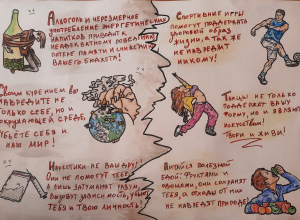 Алкоголь и чрезмерное
употребление энергетических
напитков приводит к
неадекватному поведению,
потере памяти и снижению
Вашего бюджета!
Спортивные игры
помогут поддержать
здоровый образ
жизни, а так же
не навредят
никому!
Своим курением вы
навредите не
только себе, но и
окружающей среде,
убьёте себя и
наш мир!
Танцы не только
подтягивают вашу
форму, но и являются
искусством!
Твори и живи!
Наркотики не ваш друг!
Они не помогут тебе,
а лишь затуманят разум,
вызовут зависимость, убьют
тебя и твою личность!
Питайся полезной
едой: фруктами и
овощами, они сохранят
тебя, а отходы от них
не навредят природе!